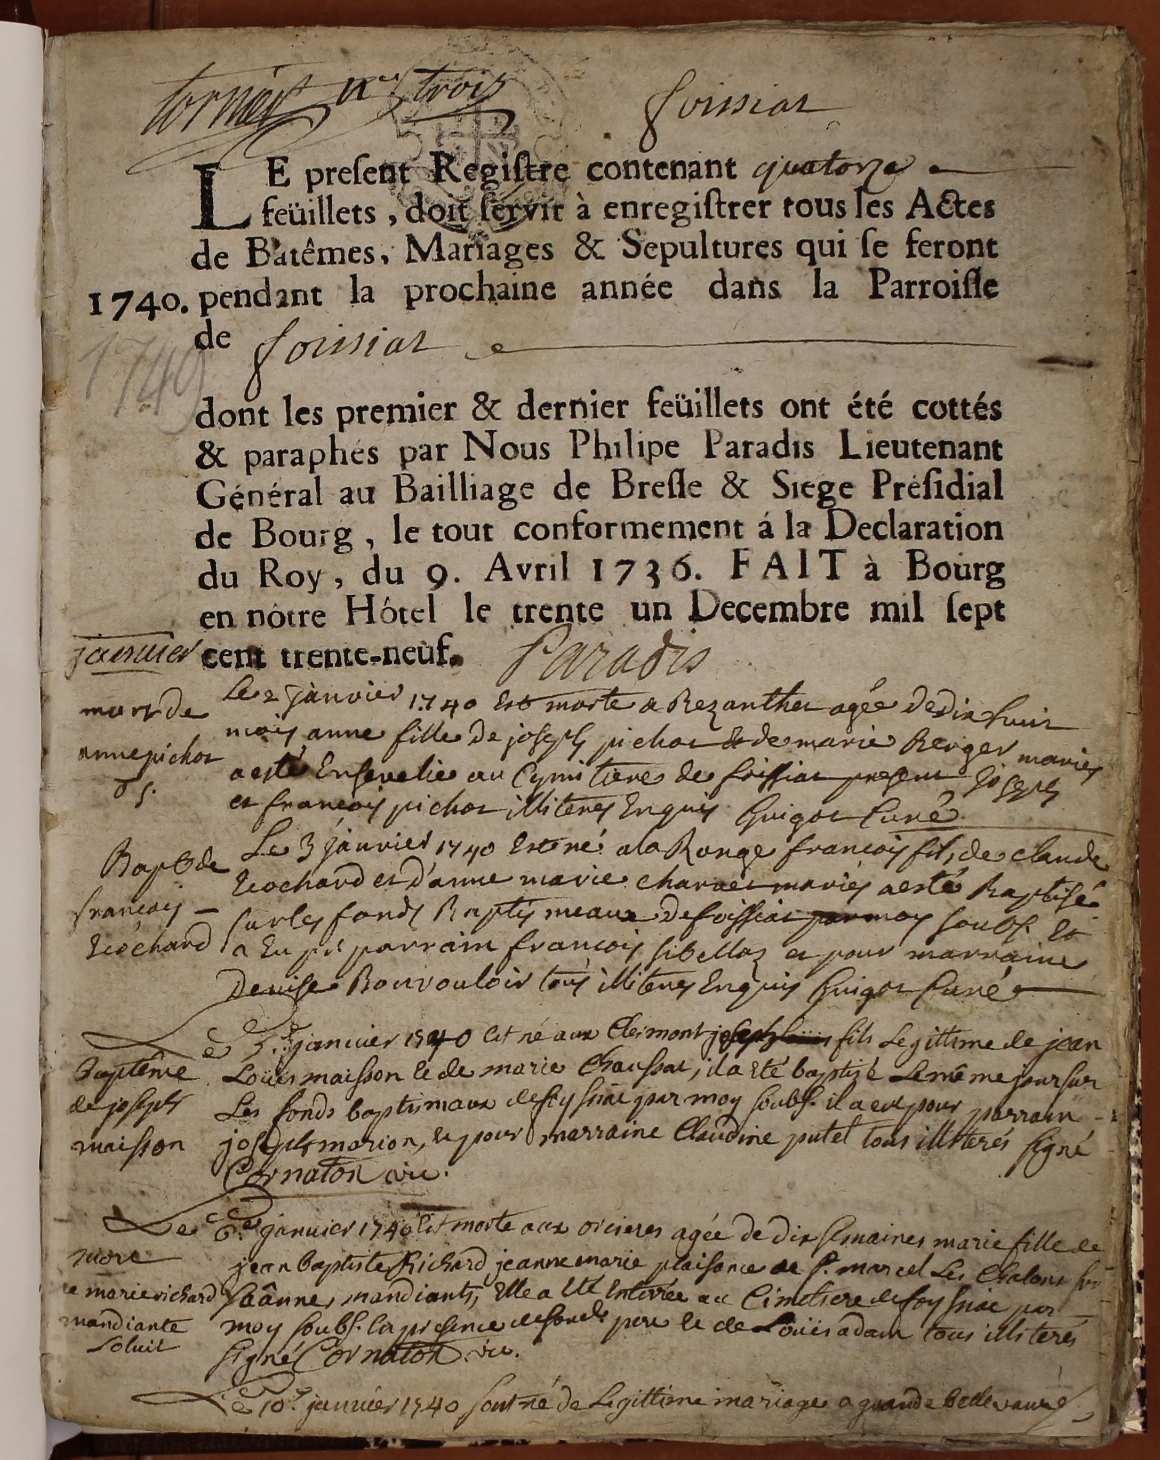 trois
foissiat
LE preſent Regiſtre contenant quatorze
feüillets, doit ſervir à enregiſtrer tous les Actes
de Batêmes, Mariages & Sepultures qui ſe feront
1740. pendant la prochaine année dans la Parroiſſe
de foissiat
1740
dont les premier & dernier feüillets ont été cottés
& paraphés par Nous Philipe Paradis Lieutenant
Général au Bailliage de Breſſe & Siege Préſidial
de Bourg, le tout conformement á la Declaration
du Roy, du 9. Avril 1736. FAIT à Bourg
en nôtre Hôtel le trente un Decembre mil ſept
cent trente-neuf. Paradis
janvier
mort de
anne pichot
Le 2 janvier 1740 Est morte a Rezanther agée de dix huit
mois anne fille de joseph pichot et de marie Berger mariés
a esté Ensevelie au Cymitiere de foissiat present joseph
et francois pichot illiterés Enquis Guigot Curé
Bapt de
francois
Ecochard
Le 3 janvier 1740 Est né a la Ronge francois fils de claude
Ecochard et d'anne marie charnet mariés a esté Baptisé
sur les fonds Baptismeaux de foissiat par moy soubs. Et
a Eu pr parrain francois sibellaz et pour marraine
Denise Bonvouloir tous illiterés Enquis Guigot Curé
baptême
de joseph
maisson
Le 5. janvier 1740 est né aux Clermont joseph fils Legittime de jean
Loüis maisson et de marie Chaussat, il a été baptisé Le même jour sur
Les fonds baptismaux de foyssiat par moy soubs. il a eu pour parrain
joseph marion, et pour marraine Claudine putet tous illiterés signé
Cornaton vic.
mort
de marie richard
mandiante
soluit
Le 6. janvier 1740 est morte aux orcieres agée de dix semaines marie fille de
jean baptiste Richard jeanne marie plaisance de st. marcel Les Chalons sur
saânne, mandiants, Elle a été Enterrée au Cimetiere de foyssiat par
moy soubs. en presence de son pere et de Loüis adam tous illiterés
signé Cornaton vic.
Le 10. janvier 1740 sont né de Legittime mariage a grande bellevavre